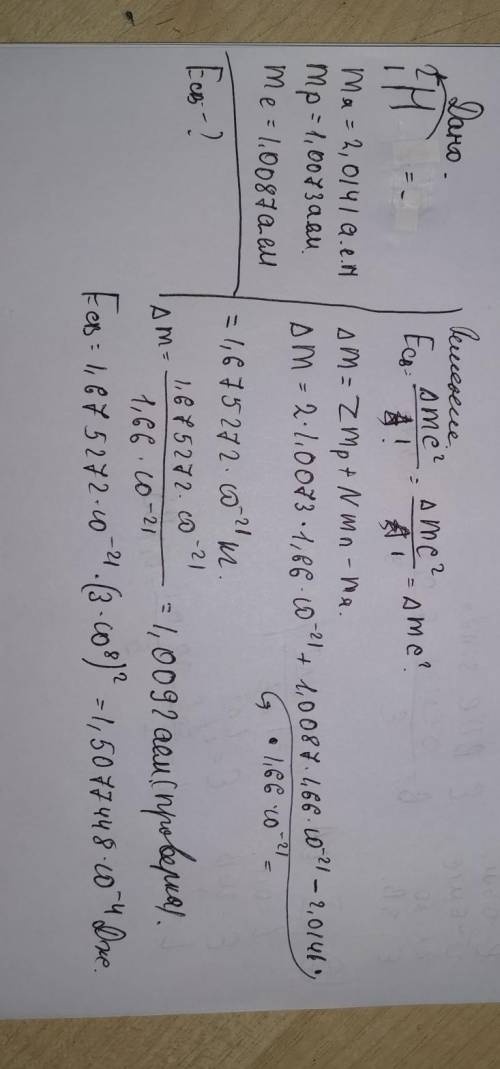 Дано:
²₁H = -
mя = 2,0141 а.е.м
mp = 1,0073 аем.
me = 1,0087 аем
Eсв - ?
Решение.
Eсв = Δmc² / 1 = Δmc² / 1 = Δmc².
Δm = Zmp + Nmn - mя.
Δm = 2·1,0073·1,66·10⁻²¹ + 1,0087·1,66·10⁻²¹ - 2,0141·
·1,66·10⁻²¹ =
= 1,675272·10⁻²¹ кг.
Δm = 1,675272·10⁻²¹ / 1,66·10⁻²¹ = 1,0092 аем (проверка).
Eсв = 1,675272·10⁻²¹·(3·10⁸)² = 1,5077448·10⁻⁴ Дж.